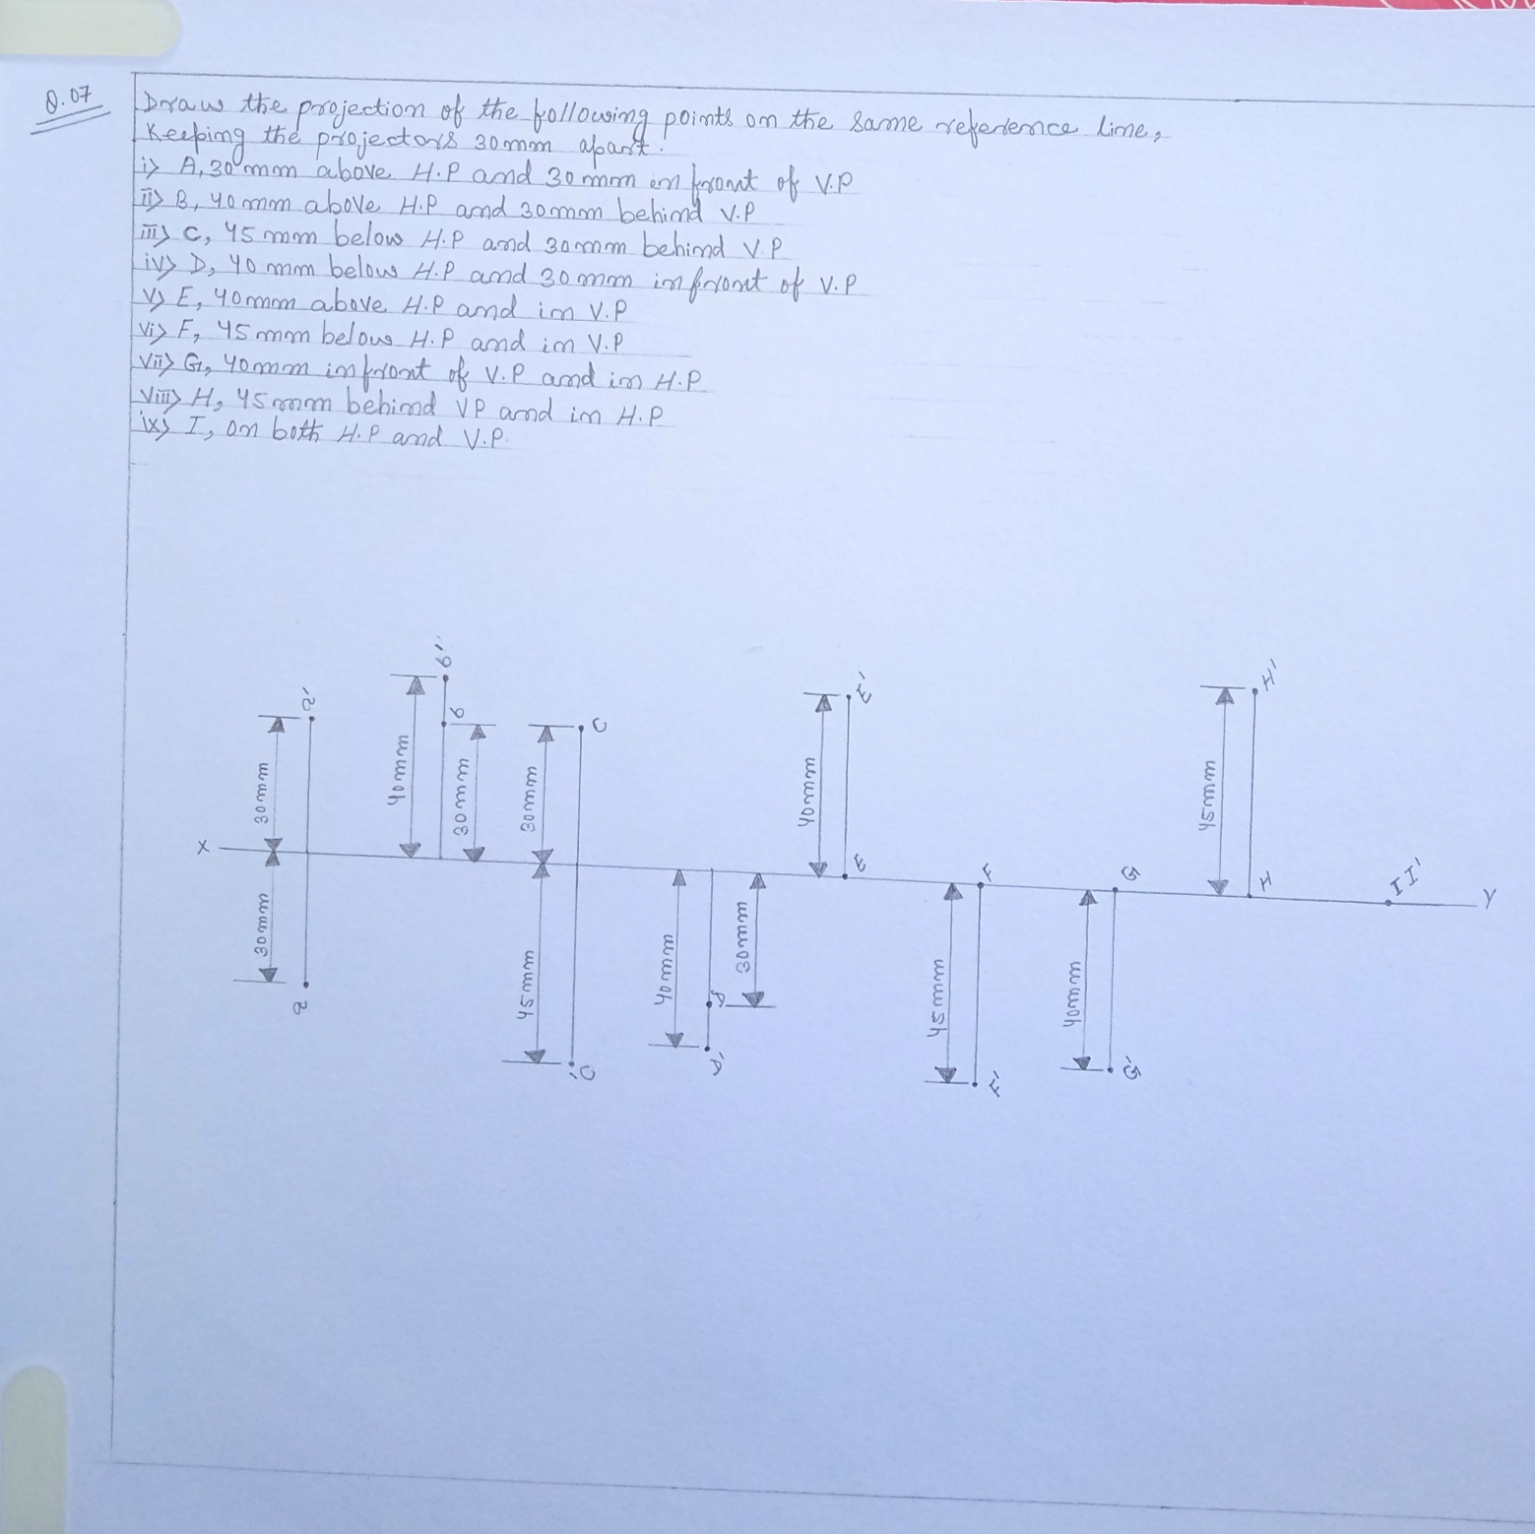 Q.07
Draw the projection of the following points on the same reference line,
Keeping the projectors 30mm apart.
i> A, 30mm above H.P and 30mm in front of V.P
ii> B, 40mm above H.P and 30mm behind V.P
iii> C, 45mm below H.P and 30mm behind V.P
iv> D, 40mm below H.P and 30mm infront of V.P
v> E, 40mm above H.P and in V.P
vi> F, 45mm below H.P and in V.P
vii> G, 40mm infront of V.P and in H.P
viii> H, 45mm behind VP and in H.P
ix> I, on both H.P and V.P.
b'
a' E' H'
b C
30mm 40mm 30mm 30mm 40mm 45mm
X e F G H I I' Y
30mm 45mm 40mm 30mm 45mm 40mm
a
C' F' G'